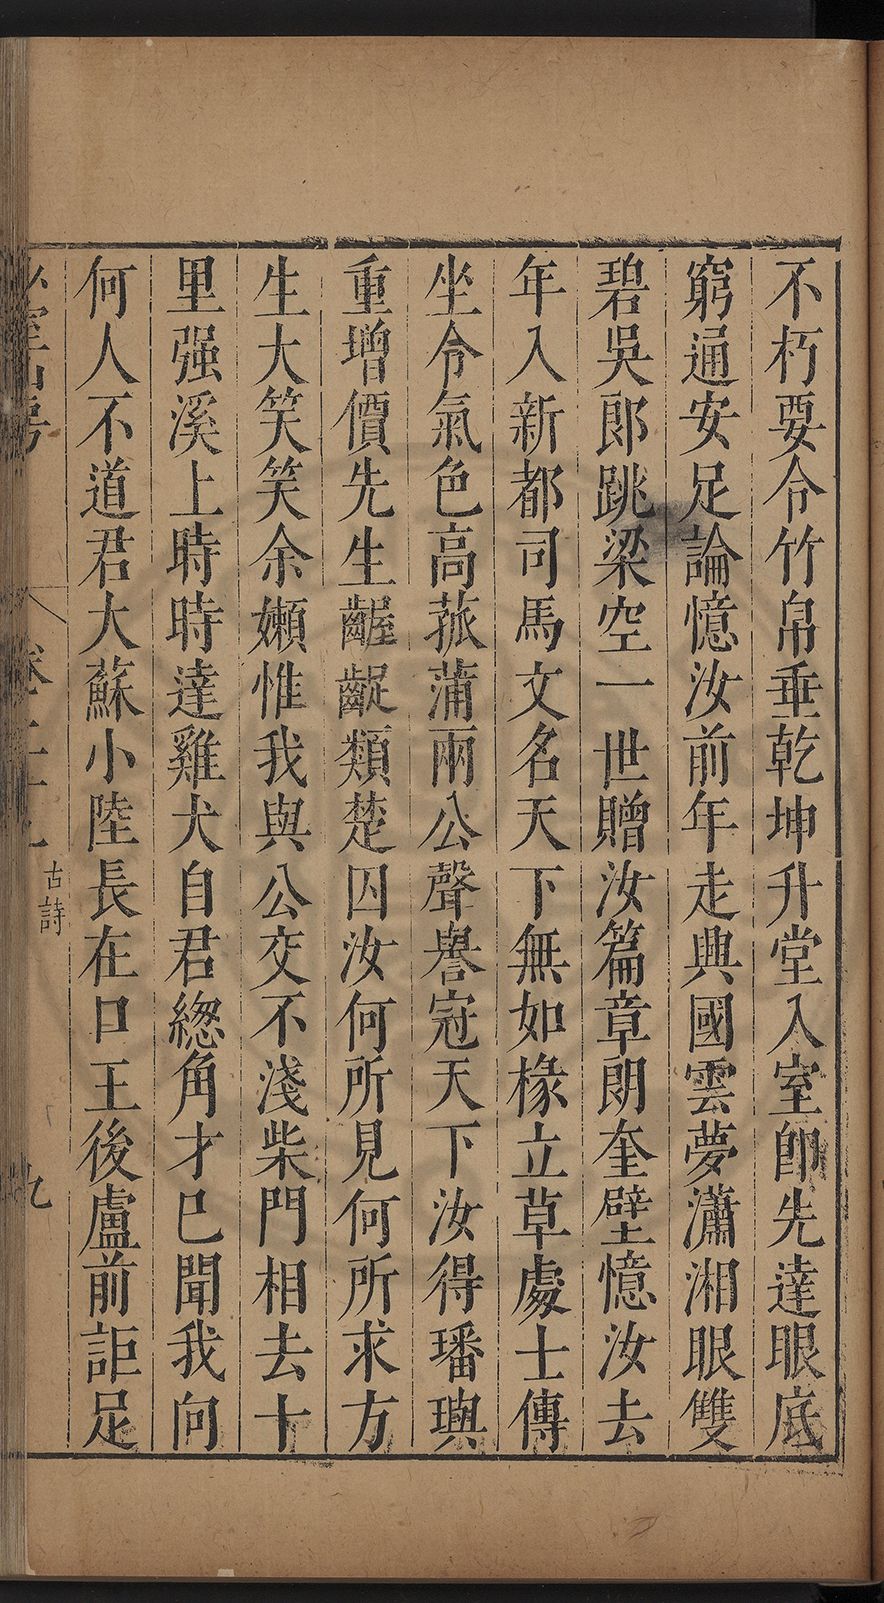 不朽要令竹帛垂乾坤升堂入室卽先達眼底
窮通安足論憶汝前年走興國雲夢瀟湘眼雙
碧吳郎跳梁空一世贈汝篇章朗奎壁憶汝去
年入新都司馬文名天下無如椽立草處士傳
坐令氣色高菰蒲兩公聲譽冠天下汝得璠璵
重增價先生齷齪類楚囚汝何所見何所求方
生大笑笑余嬾惟我與公交不淺柴門相去十
里强溪上時時達雞犬自君緫角才巳聞我向
何人不道君大蘇小陸長在口王後盧前詎足
古詩
九